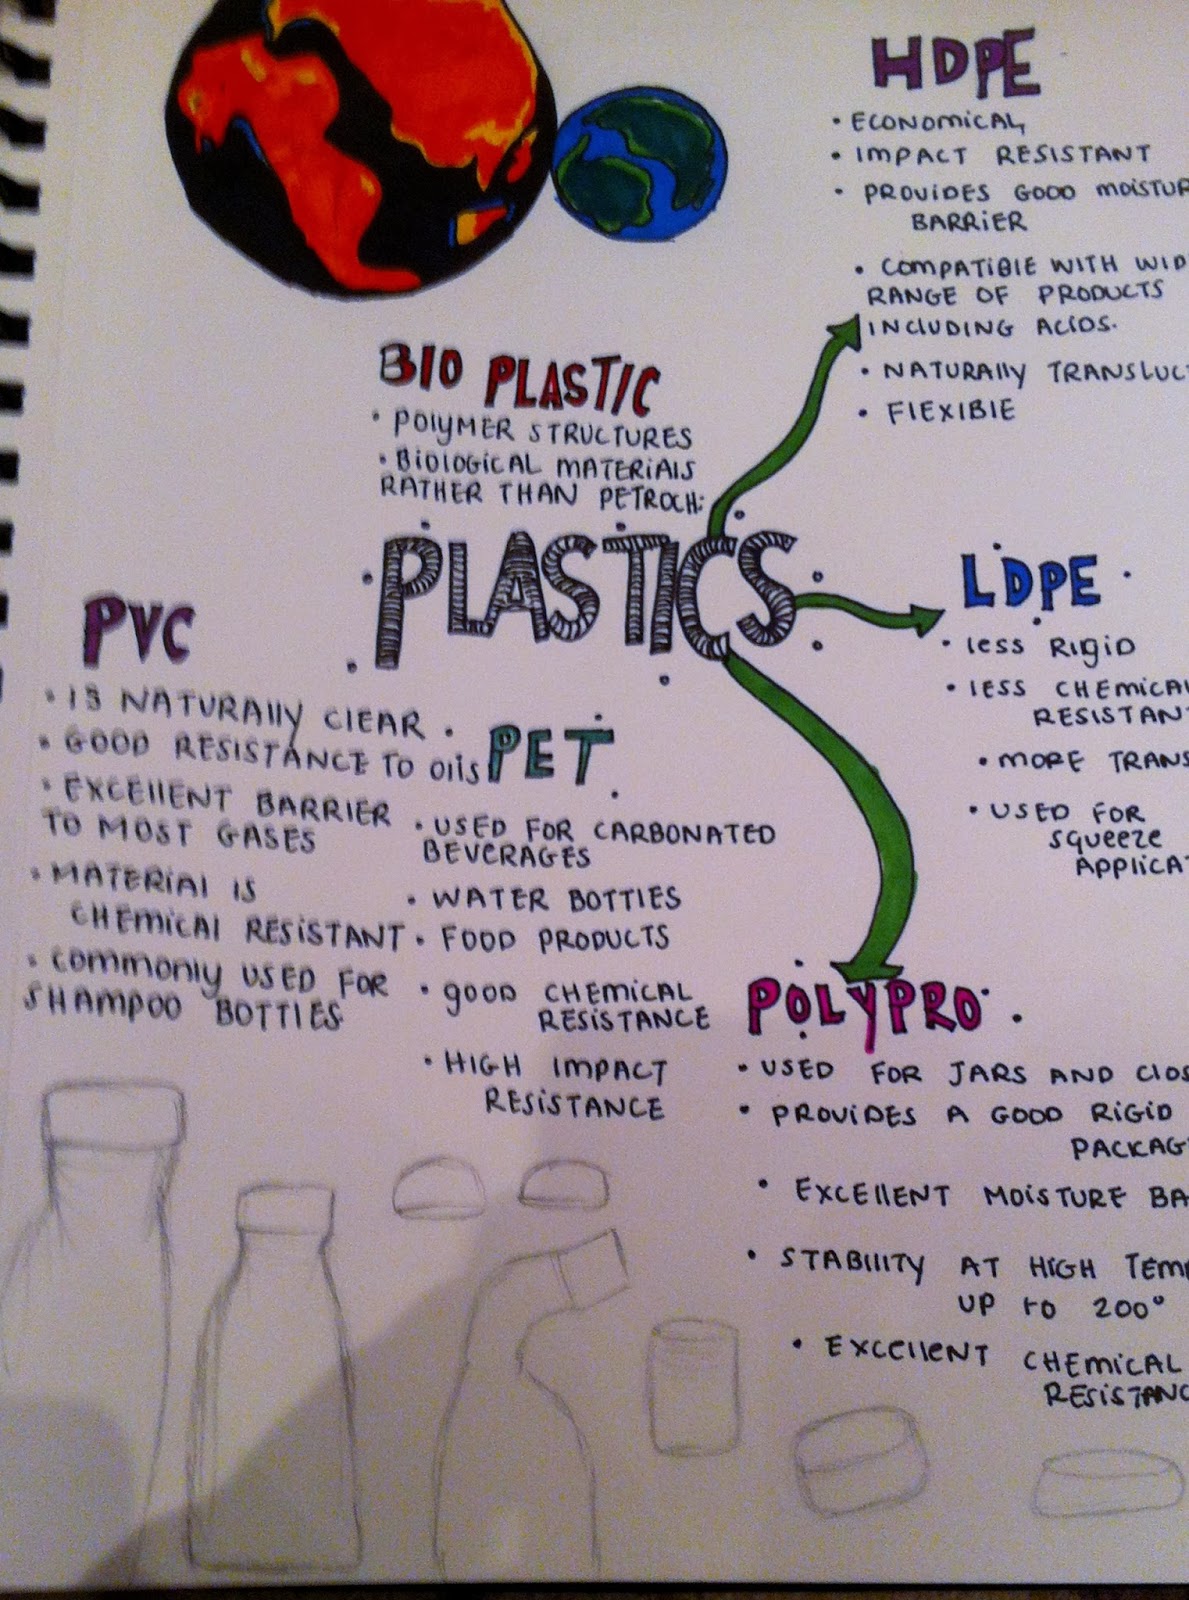 HDPE
• ECONOMICAL
• IMPACT RESISTANT
• PROVIDES GOOD MOISTUR
BARRIER
• COMPATIBLE WITH WID
RANGE OF PRODUCTS
INCLUDING ACIDS.
• NATURALLY TRANSLUC
• FLEXIBLE
BIO PLASTIC
• POLYMER STRUCTURES
• BIOLOGICAL MATERIALS
RATHER THAN PETROCH:
PLASTICS
LDPE
• less RIGID
• LESS CHEMICAL
RESISTAN
• MORE TRANS
• USED FOR
squeeze
APPLICAT
PVC
• IS NATURALLY CLEAR
• GOOD RESISTANCE TO OILS
• EXCELLENT BARRIER
TO MOST GASES
• MATERIAL IS
CHEMICAL RESISTANT
• COMMONLY USED FOR
SHAMPOO BOTTLES
PET
• USED FOR CARBONATED
BEVERAGES
• WATER BOTTLES
• FOOD PRODUCTS
• GOOD CHEMICAL
RESISTANCE
• HIGH IMPACT
RESISTANCE
POLYPRO
• USED FOR JARS AND CLOS
• PROVIDES A GOOD RIGID
PACKAG
• EXCELLENT MOISTURE BA
• STABILITY AT HIGH TEMP
UP TO 200°
• EXCELLENT CHEMICAL
RESISTANC